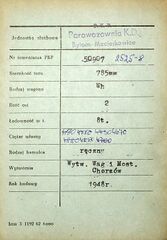 P.K.P.
Jednostka służbowa Parowozownia K.D.
Bytom-Maciejkowice
Nr inwentarza PKP 50907 2525-8
Szerokość toru 785mm
Rodzaj wagonu Wh
Ilość osi 2
Ładowność w t. 8t.
Ciężar własny
Rodzaj hamulca ręczny
Wytwórnia Wytw. Wag i Most.
Chorzów
Rok budowy 1948r.